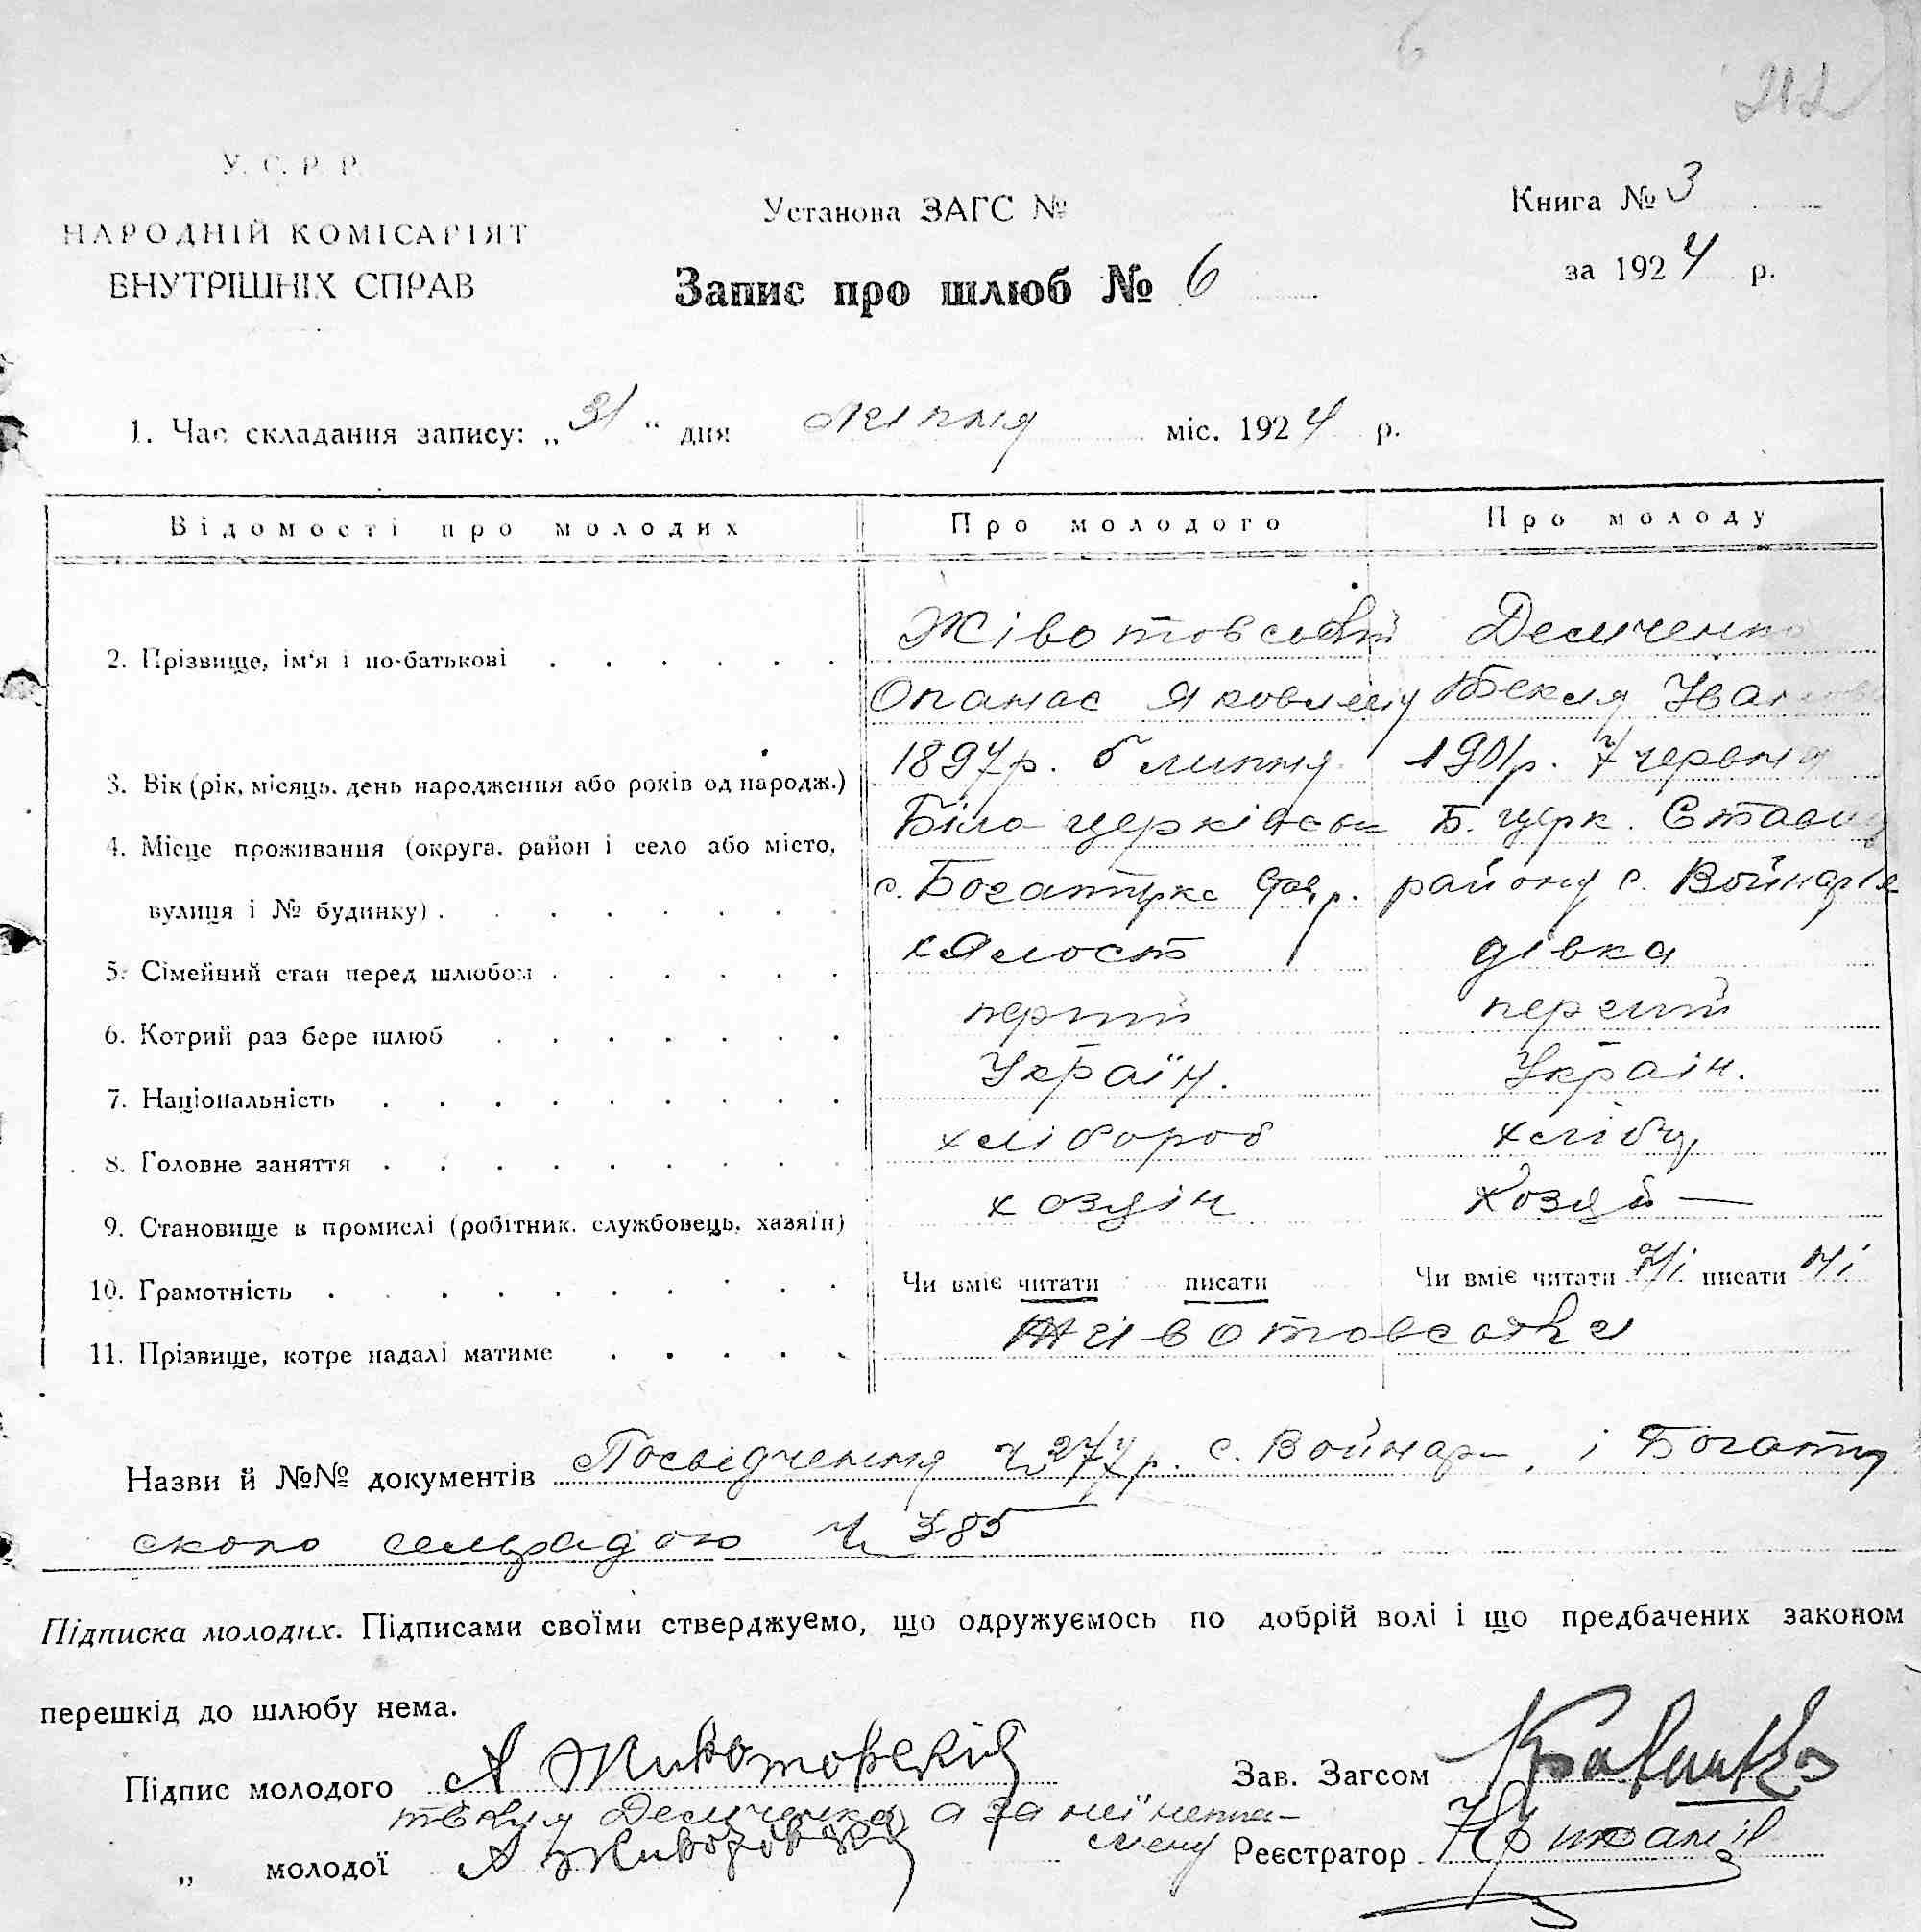 6
212
У. С. Р. Р.
НАРОДНІЙ КОМІСАРІЯТ
ВНУТРІШНІХ СПРАВ
Установа ЗАГС №
Запис про шлюб № 6
Книга № 3
за 1924 р.
1. Час складання запису: „31“ дня липня міс. 1924 р.
Відомості про молодих Про молодого Про молоду
2. Прізвище, ім'я і по-батькові Жівотовський Демченко
Опанас Яковлев Текля Іван
3. Вік (рік, місяць, день народження або років од народж.) 1897р. 5 липня 1901р. 7 червня
4. Місце проживання (округа, район і село або місто, Біло-церківськ Б. церк. Ставищ
вулиця і № будинку) с. Богатирка р. району с. Войнарів
5. Сімейний стан перед шлюбом холост дівка
6. Котрий раз бере шлюб перший перший
7. Національність Україн. Україн.
8. Головне заняття хлібороб хліб
9. Становище в промислі (робітник, службовець, хазяїн) хозяін хозяй—
10. Грамотність Чи вміє читати писати Чи вміє читати ні писати ні
11. Прізвище, котре надалі матиме Животовські
Назви й №№ документів Посвідчення Ч 277 р. с. Войнар , і Богати
ською сельрадою Ч 385
Підписка молодих. Підписами своїми стверджуємо, що одружуємось по добрій волі і що предбачених законом
перешкід до шлюбу нема.
Підпис молодого А Животовский Зав. Загсом
Текля Демченко а за неї непис-
„ молодої А Животовский мену Реєстратор